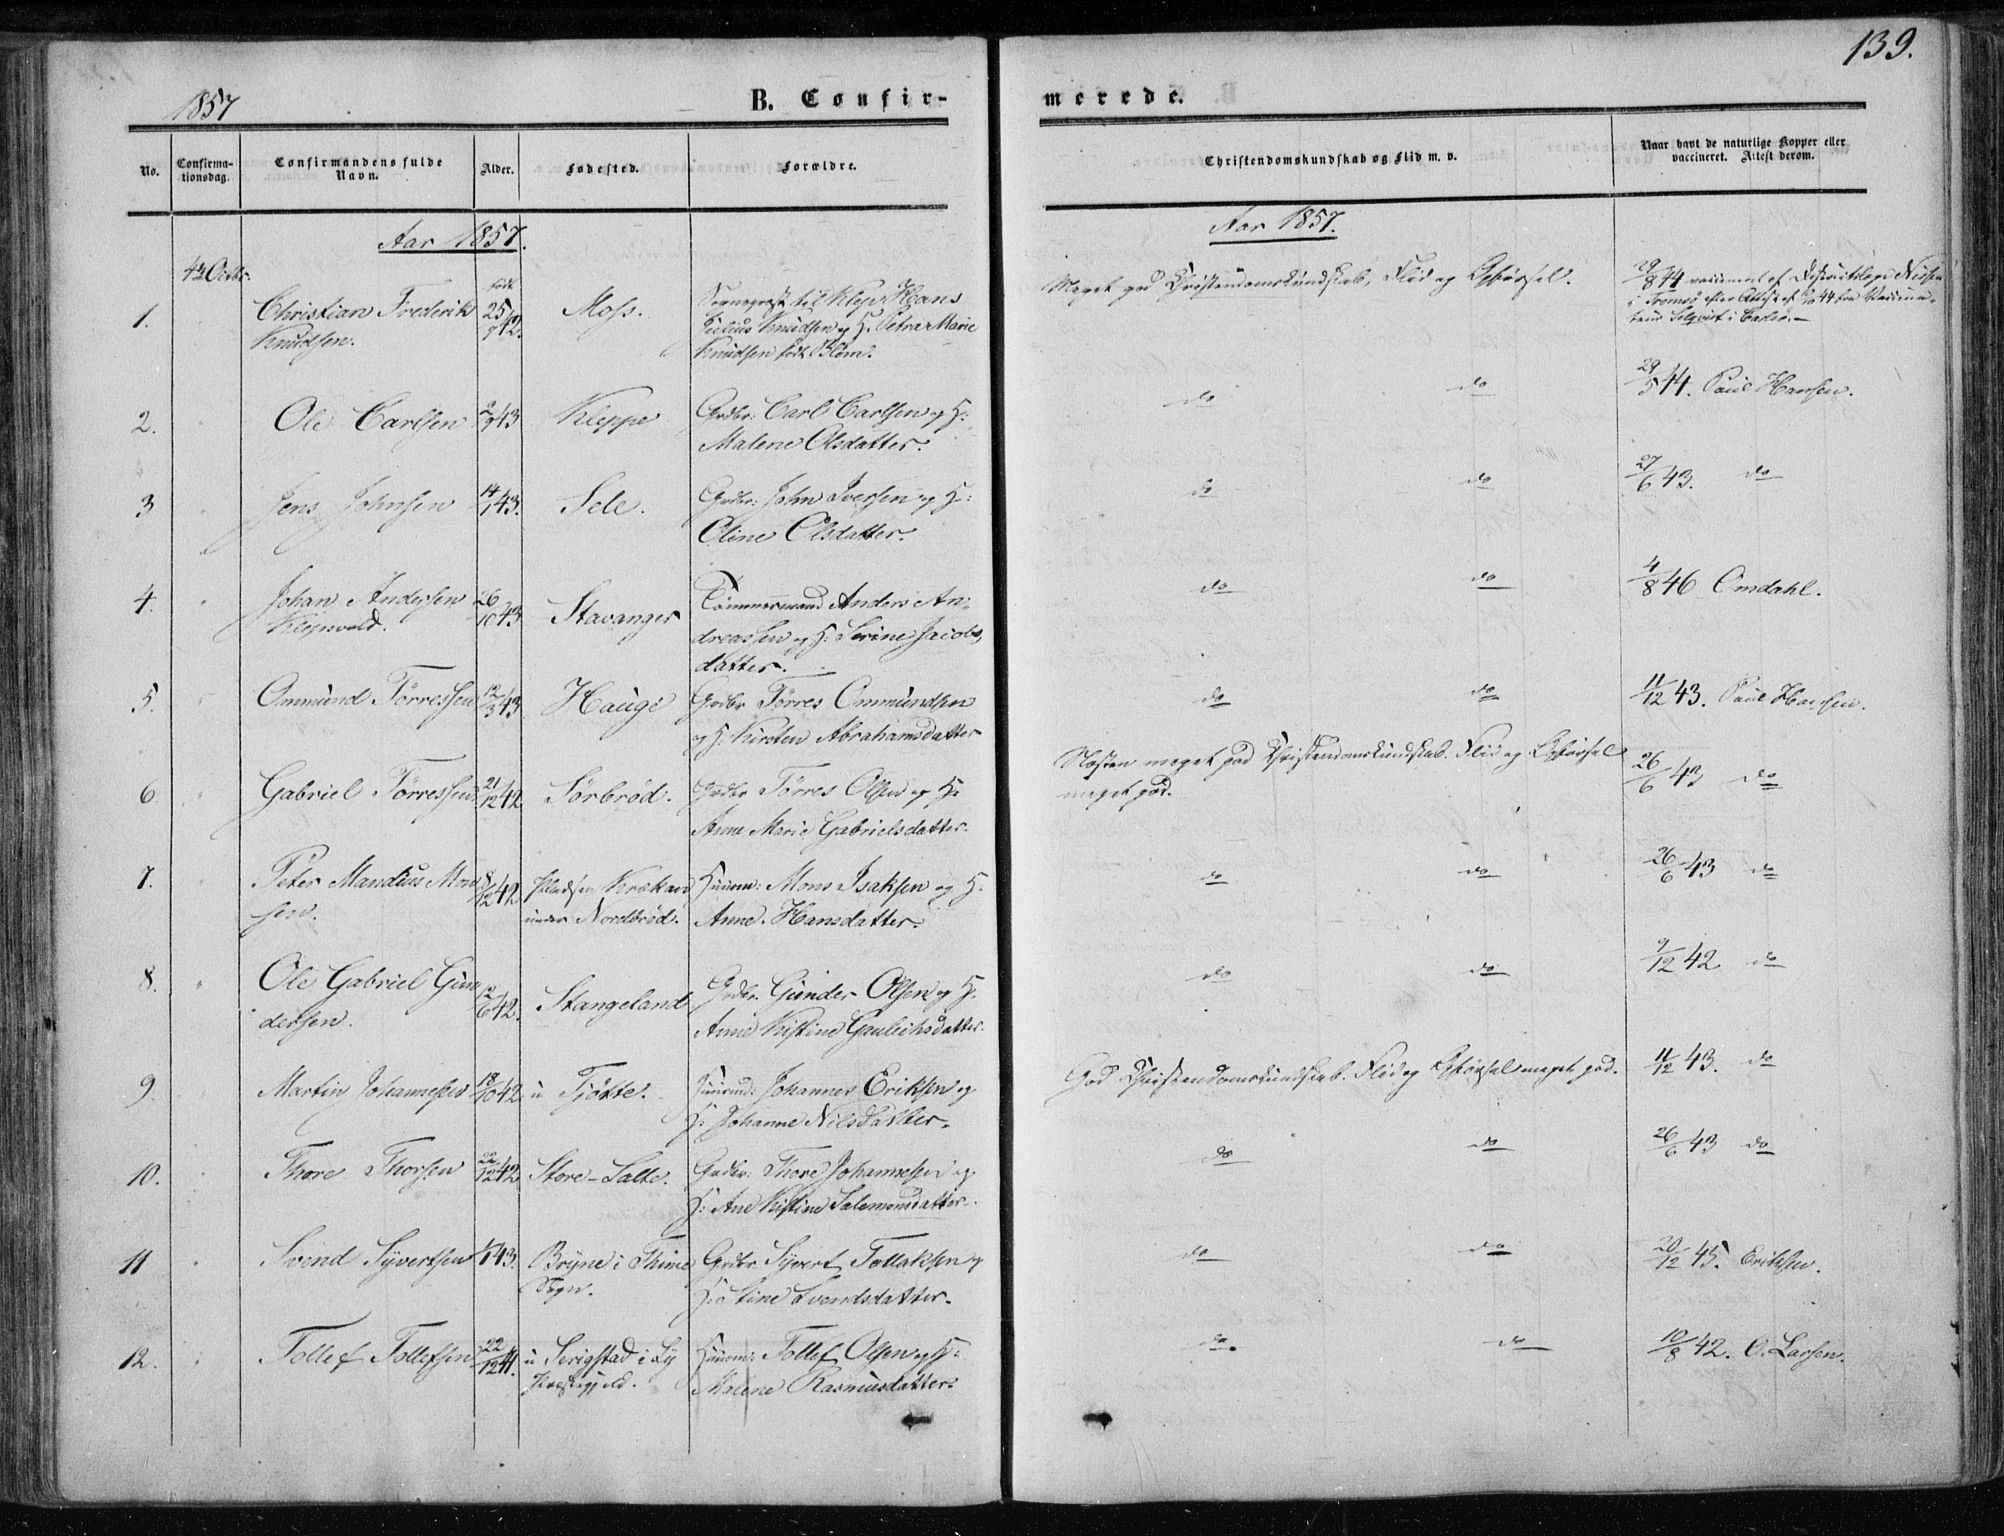 139.
1857
B. Confir-
merede.
No.
Confirma-
tionsdag.
Confirmandens fulde
Navn.
Alder.
Fødested.
Forældre.
Christendomskundskab og Flid m. v.
Naar havt de naturlige Kopper eller
vaccineret. Attest derom.
Aar 1857.
Aar 1857.
4de Octbr.
1.
Christian Frederik
Knudsen.
født
25/9 42.
Moss.
Sognepræst til Klep Hans
Julius Knudsen og H. Petra Marie
Knudsen født Blom.
Meget god Christendomskundskab, Flid og Opførsel.
29/8 44 vaccineret af Districtslæge Nissen
i Tromsø efter Attest af 44 fra Vaccina-
teur
2.
Ole Carlsen
2/9 43
Kleppe
Grdbr. Carl Carlsen og H:
Malene Olsdatter.
do
do
29/5 44. Paul Hansen.
3
Jens Johnsen
14/1 43.
Sele.
Grdbr. John Iversen og H:
Oline Olsdatter.
do
do
27/6 43. do
4.
Johan Andersen
Klepsvold.
26/10 43
Stavanger
Tømmermand Anders An-
dreassen og H: Serine Jacobs-
datter.
do
do
4/8 46 Omdahl.
5.
Ommund Tørressen
12/3 43
Hauge
Grdbr Tørres Ommundsen
og H: Kirsten Abrahamsdatter
do
do
11/12 43. Paul Hansen.
6
Gabriel Tørressen
21/12 42
Sørbrød.
Grdbr Tørres Olsen og H:
Anne Marie Gabrielsdatter.
Næsten meget god Christendomskundskab. Flid og Opførsel
meget god.
26/6 43 do
7.
Peter Mandius Mon
sen.
8/12 42
Pladsen Kråkan
under Nordbrød.
Huusm: Mons Isaksen og H.
Anne Hansdatter.
do
do
26/6 43 do
8.
Ole Gabriel Gun
dersen.
12/6 42.
Stangeland
Grdbr. Gunder Olsen og H.
Anne Kistine Gaulichsdatter.
do
do
9/12 42 do
9.
Martin Johannesen
18/10 42
u Tjøtte.
Johannes Eriksen og
H: Johanne Nilsdatter.
God Christendomskundskab. Flid og Opførsel meget god.
11/12 43. do
10.
Thore Thorsen
22/12 42
Store-Salte.
Grdbr: Thore Johannesen og
H: Ane Kistine Salemonsdatter.
do
do
26/6 43 do
11
Svend Syvertsen
43.
Bryne i Thime
Sogn.
Grdbr. Syvert Tollaksen og
H: Stine Svendsdatter.
do
do
20/12 45. Eriksen.
12.
Tollef Tollefsen
22/12 41.
u Serigstad i Ly
Præstegjeld.
Huusm: Tollef Olsen og H:
Malene Rasmusdatter.
do
do
10/8 42. O. Larsen.